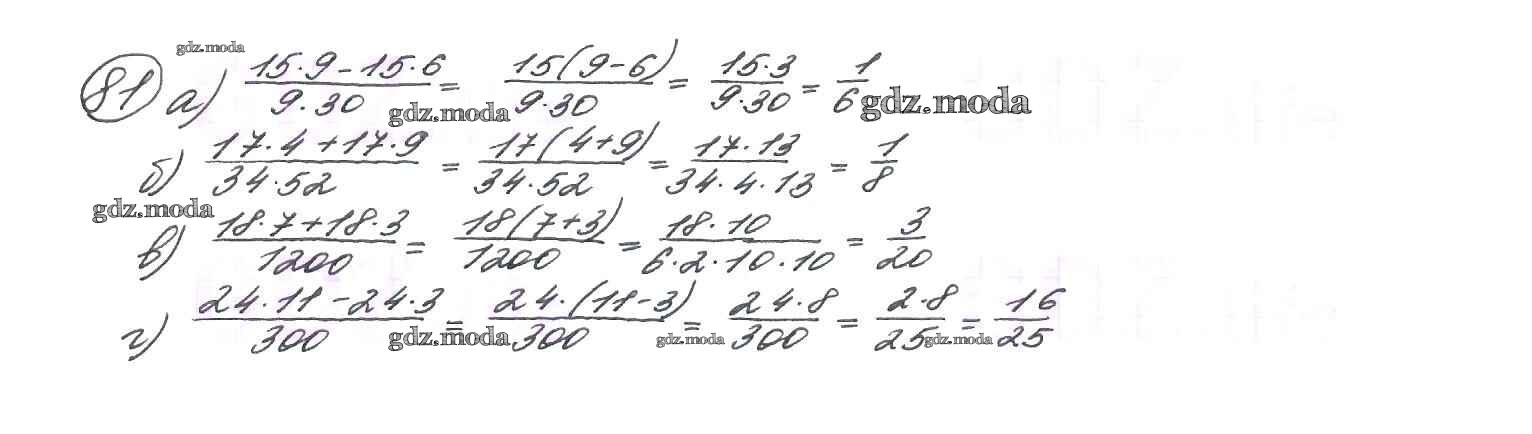 gdz.moda
81 а) (15·9-15·6)/(9·30) = 15(9-6)/(9·30) = (15·3)/(9·30) = 1/6
gdz.moda gdz.moda
б) (17·4+17·9)/(34·52) = 17(4+9)/(34·52) = (17·13)/(34·4·13) = 1/8
gdz.moda
в) (18·7+18·3)/1200 = 18(7+3)/1200 = (18·10)/(6·2·10·10) = 3/20
г) (24·11-24·3)/300 = 24·(11-3)/300 = (24·8)/300 = (2·8)/25 = 16/25
gdz.moda gdz.moda gdz.moda